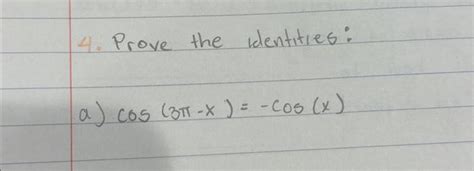 4. Prove the identities:
a) cos (3π-x) = -cos(x)